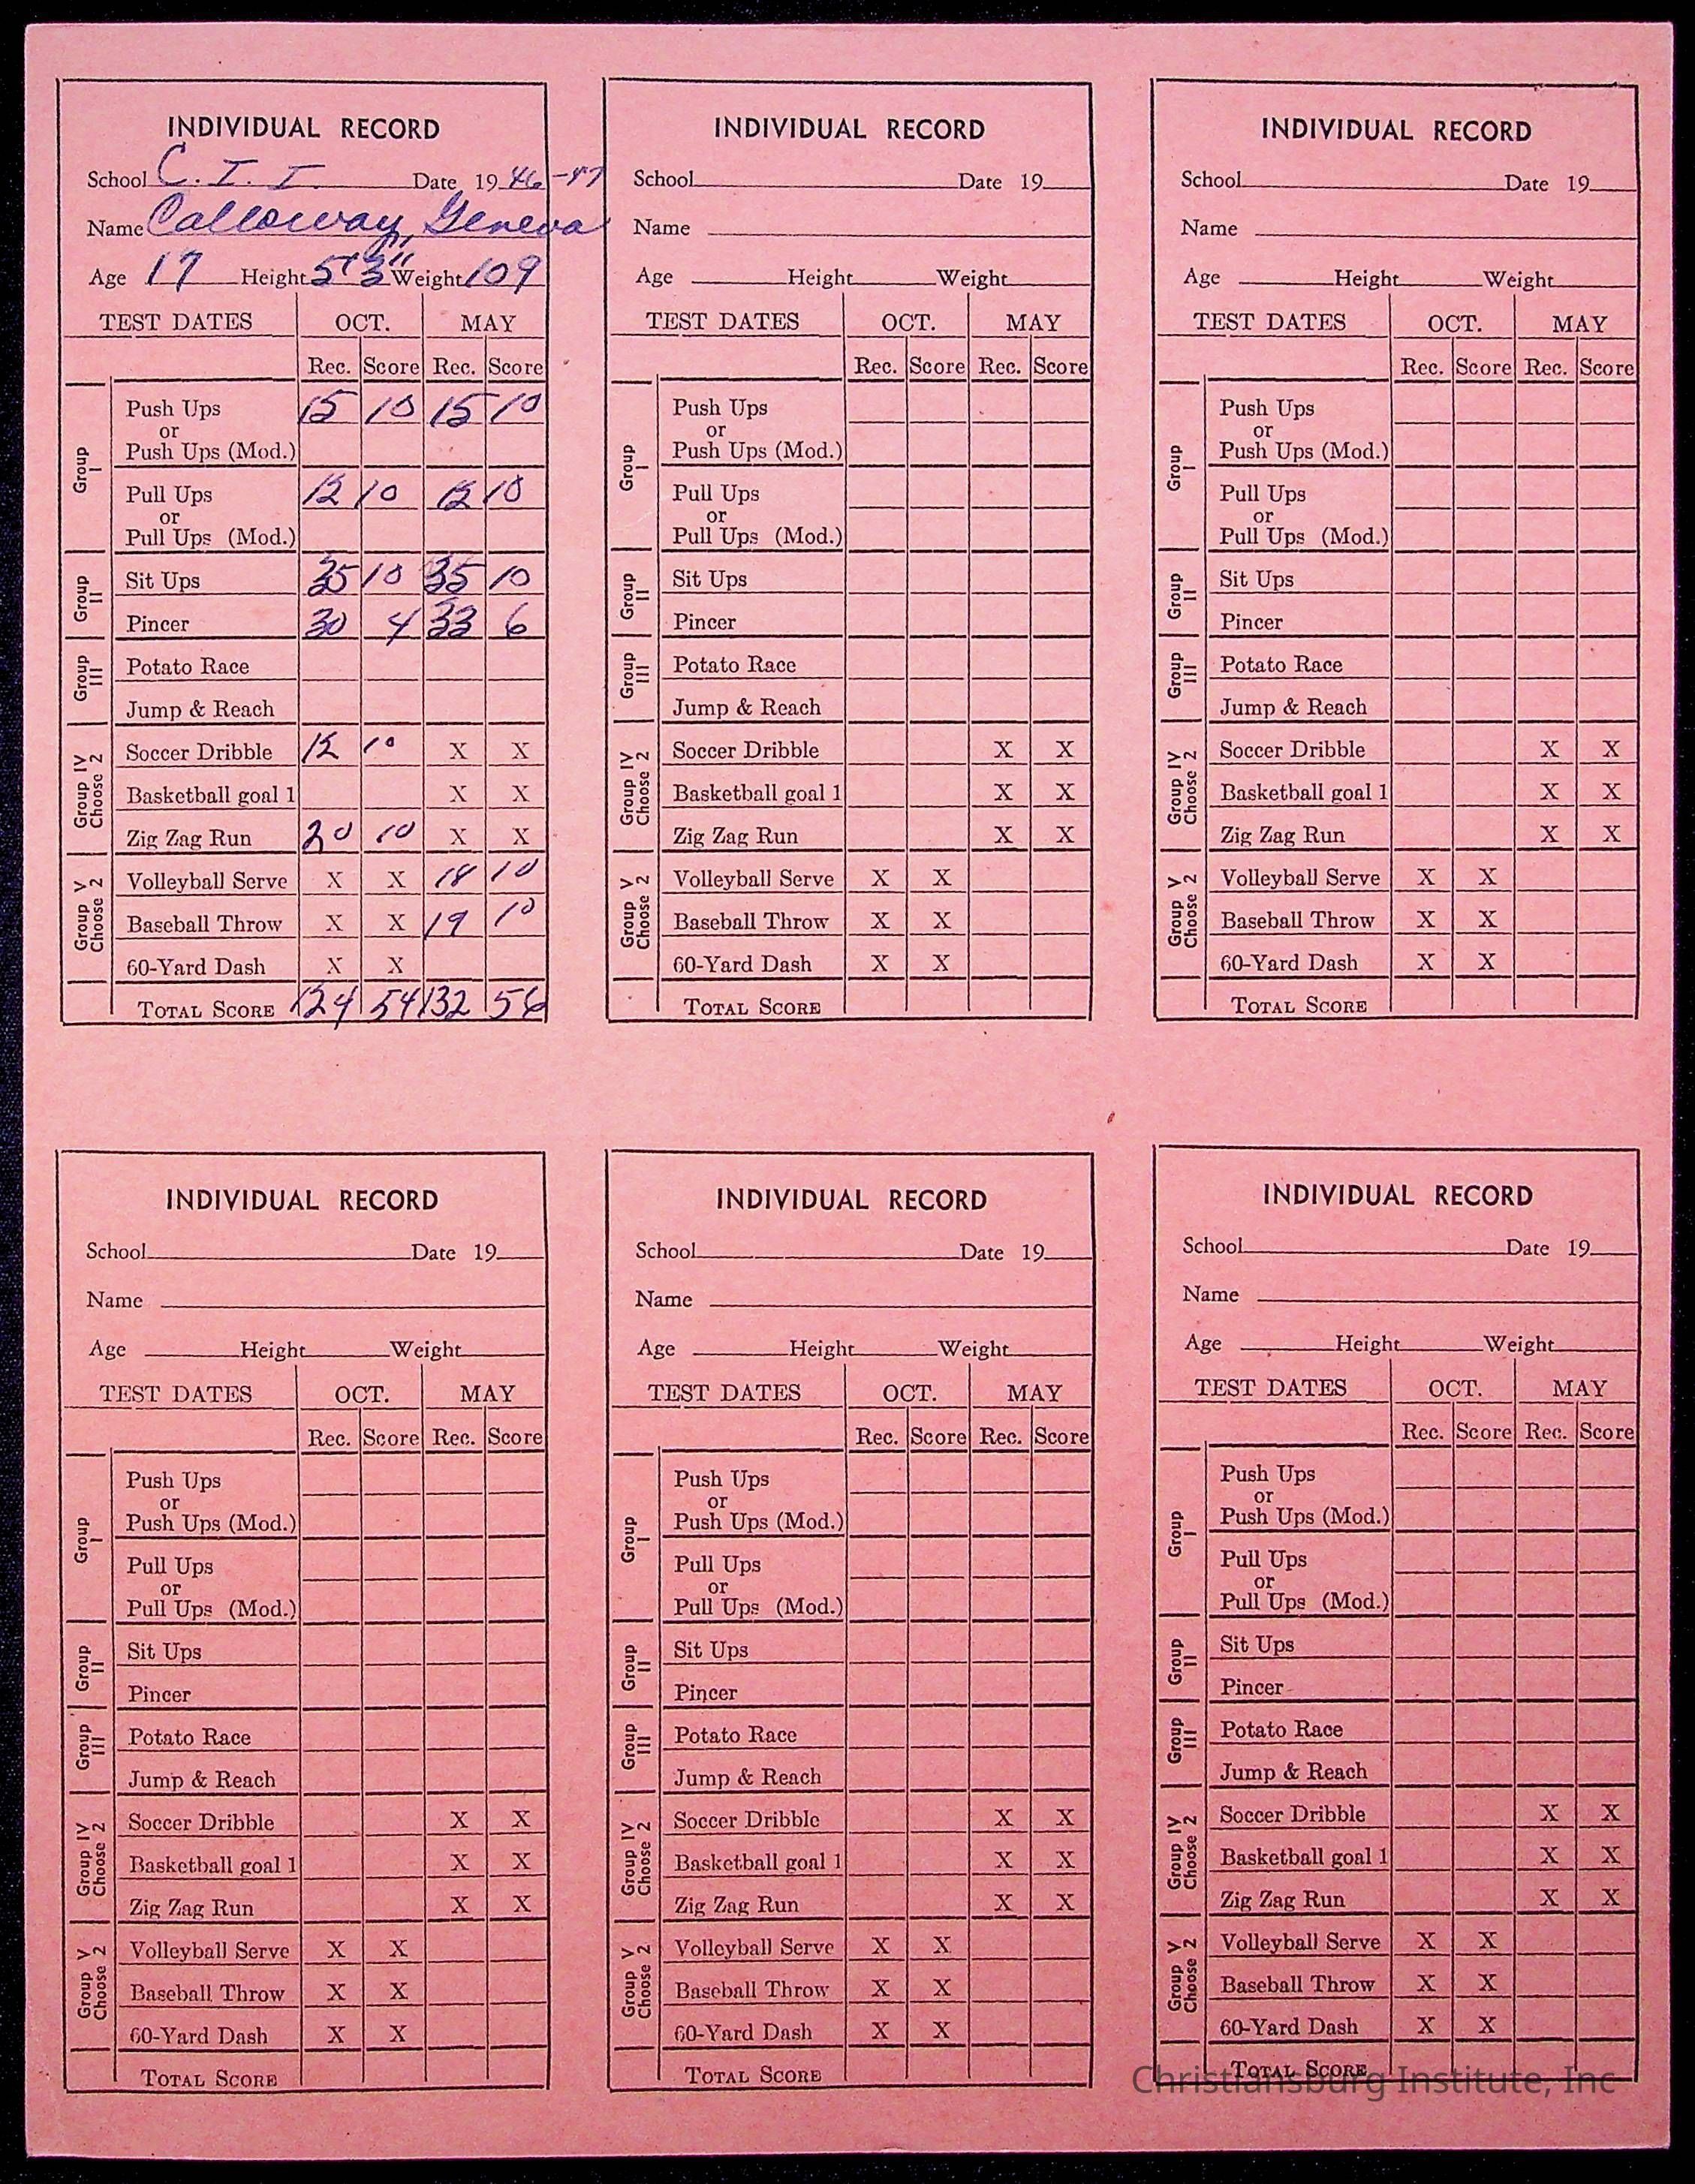 INDIVIDUAL RECORD
School C. I. I. Date 1946-47
Name Calloway, Geneva
Age 17 Height 5' 3" Weight 109
TEST DATES OCT. MAY
Rec. Score Rec. Score
Group I
Push Ups 15 10 15 10
or
Push Ups (Mod.)
Pull Ups 12 10 12 10
or
Pull Ups (Mod.)
Group II
Sit Ups 35 10 35 10
Pincer 30 4 33 6
Group III
Potato Race
Jump & Reach
Group IV Choose 2
Soccer Dribble 12 10 X X
Basketball goal 1 X X
Zig Zag Run 20 10 X X
Group V Choose 2
Volleyball Serve X X 18 10
Baseball Throw X X 19 10
60-Yard Dash X X
TOTAL SCORE 124 54 132 56
INDIVIDUAL RECORD
School Date 19
Name
Age Height Weight
TEST DATES OCT. MAY
Rec. Score Rec. Score
Group I
Push Ups
or
Push Ups (Mod.)
Pull Ups
or
Pull Ups (Mod.)
Group II
Sit Ups
Pincer
Group III
Potato Race
Jump & Reach
Group IV Choose 2
Soccer Dribble X X
Basketball goal 1 X X
Zig Zag Run X X
Group V Choose 2
Volleyball Serve X X
Baseball Throw X X
60-Yard Dash X X
TOTAL SCORE
INDIVIDUAL RECORD
School Date 19
Name
Age Height Weight
TEST DATES OCT. MAY
Rec. Score Rec. Score
Group I
Push Ups
or
Push Ups (Mod.)
Pull Ups
or
Pull Ups (Mod.)
Group II
Sit Ups
Pincer
Group III
Potato Race
Jump & Reach
Group IV Choose 2
Soccer Dribble X X
Basketball goal 1 X X
Zig Zag Run X X
Group V Choose 2
Volleyball Serve X X
Baseball Throw X X
60-Yard Dash X X
TOTAL SCORE
INDIVIDUAL RECORD
School Date 19
Name
Age Height Weight
TEST DATES OCT. MAY
Rec. Score Rec. Score
Group I
Push Ups
or
Push Ups (Mod.)
Pull Ups
or
Pull Ups (Mod.)
Group II
Sit Ups
Pincer
Group III
Potato Race
Jump & Reach
Group IV Choose 2
Soccer Dribble X X
Basketball goal 1 X X
Zig Zag Run X X
Group V Choose 2
Volleyball Serve X X
Baseball Throw X X
60-Yard Dash X X
TOTAL SCORE
INDIVIDUAL RECORD
School Date 19
Name
Age Height Weight
TEST DATES OCT. MAY
Rec. Score Rec. Score
Group I
Push Ups
or
Push Ups (Mod.)
Pull Ups
or
Pull Ups (Mod.)
Group II
Sit Ups
Pincer
Group III
Potato Race
Jump & Reach
Group IV Choose 2
Soccer Dribble X X
Basketball goal 1 X X
Zig Zag Run X X
Group V Choose 2
Volleyball Serve X X
Baseball Throw X X
60-Yard Dash X X
TOTAL SCORE
INDIVIDUAL RECORD
School Date 19
Name
Age Height Weight
TEST DATES OCT. MAY
Rec. Score Rec. Score
Group I
Push Ups
or
Push Ups (Mod.)
Pull Ups
or
Pull Ups (Mod.)
Group II
Sit Ups
Pincer
Group III
Potato Race
Jump & Reach
Group IV Choose 2
Soccer Dribble X X
Basketball goal 1 X X
Zig Zag Run X X
Group V Choose 2
Volleyball Serve X X
Baseball Throw X X
60-Yard Dash X X
TOTAL SCORE
Christiansburg Institute, Inc